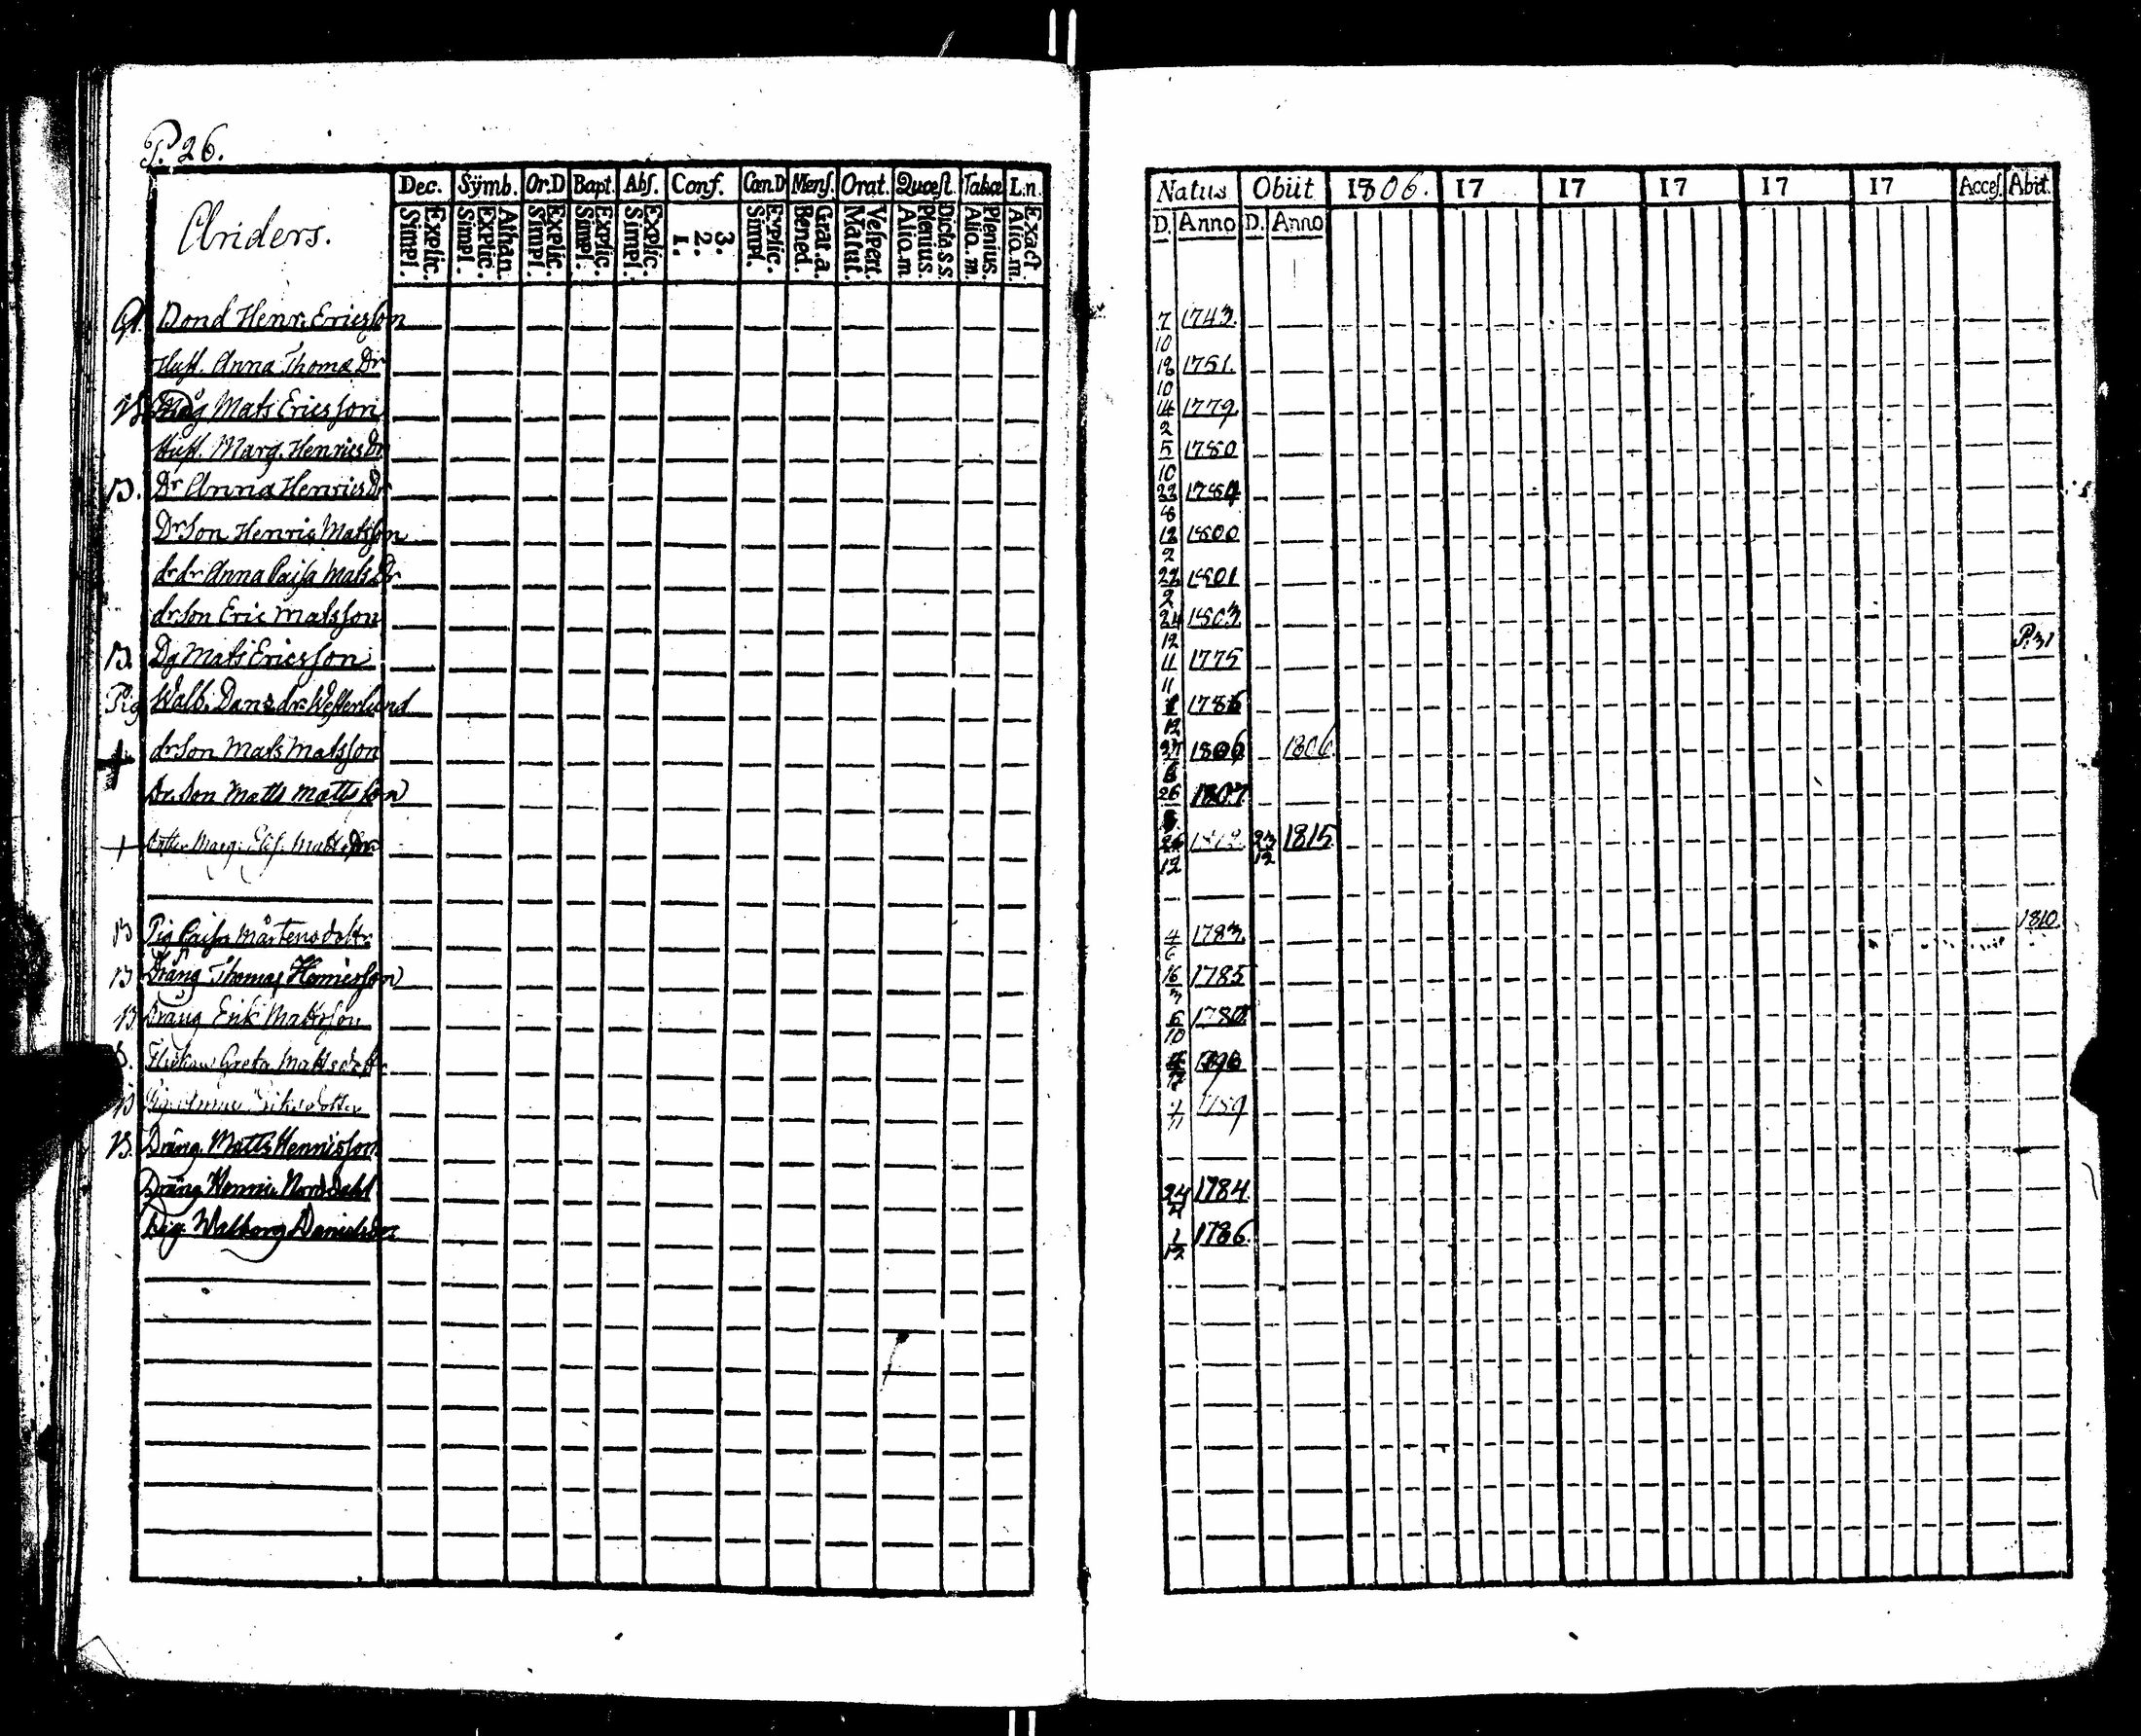 P. 26.
Dec. Sÿmb. Or.D Bapt. Abs. Conf. Can.D Mens. Orat. Quæst. Tabæ L.n.
Simpl. Explic. Simpl. Explic. Athan. Simpl. Explic. Simpl. Explic. Simpl. Explic. 1. 2. 3. Simpl. Explic. Bened. Grat.a. Matut. Vespert. Aliq.m Plenius. Dicta.s.s. Aliq.m. Plenius. Aliq.m. Exact
Ariders.
Bond Henr. Ericsson
Hust. Anna Thomæ Dr
Måg Mats Ericsson
Hust. Marg. Henrics Dr
B. Dr Anna Henrics Dr
Dr Son Henric Matsson
dr dr Anna Caisa Mats Dr
dr Son Eric Matsson
B. Dg Mats Ericsson
Pig Walb. Dans dr Westerlund
+ dr Son Mats Matsson
Dr. Son Matts Mattsson
+ Marg. Matts Dr
B Pig Caisa Mårtensdottr
B Dräng Thomas Henricsson
B Dräng Erik Mattsson
Greta Mattsdottr
B
B. Dräng Matts Henricsson
Dräng Henric Norrdahl
Pig Walborg Daniels Dr
Natus Obiit 1806. 17 17 17 17 17 Acces. Abit.
D. Anno D. Anno
7/10 1743.
18/10 1751.
14/2 1779
5/10 1780
22/8 1784
12/2 1800
22/2 1801
24/12 1803
11/11 1775 P. 31
1/12 1786
1806 1806.
26 1807
26/12 23/12 1815
4/6 1783. 1810
16/3 1785
6/10 1780
1789
24 1784.
1/12 1786.